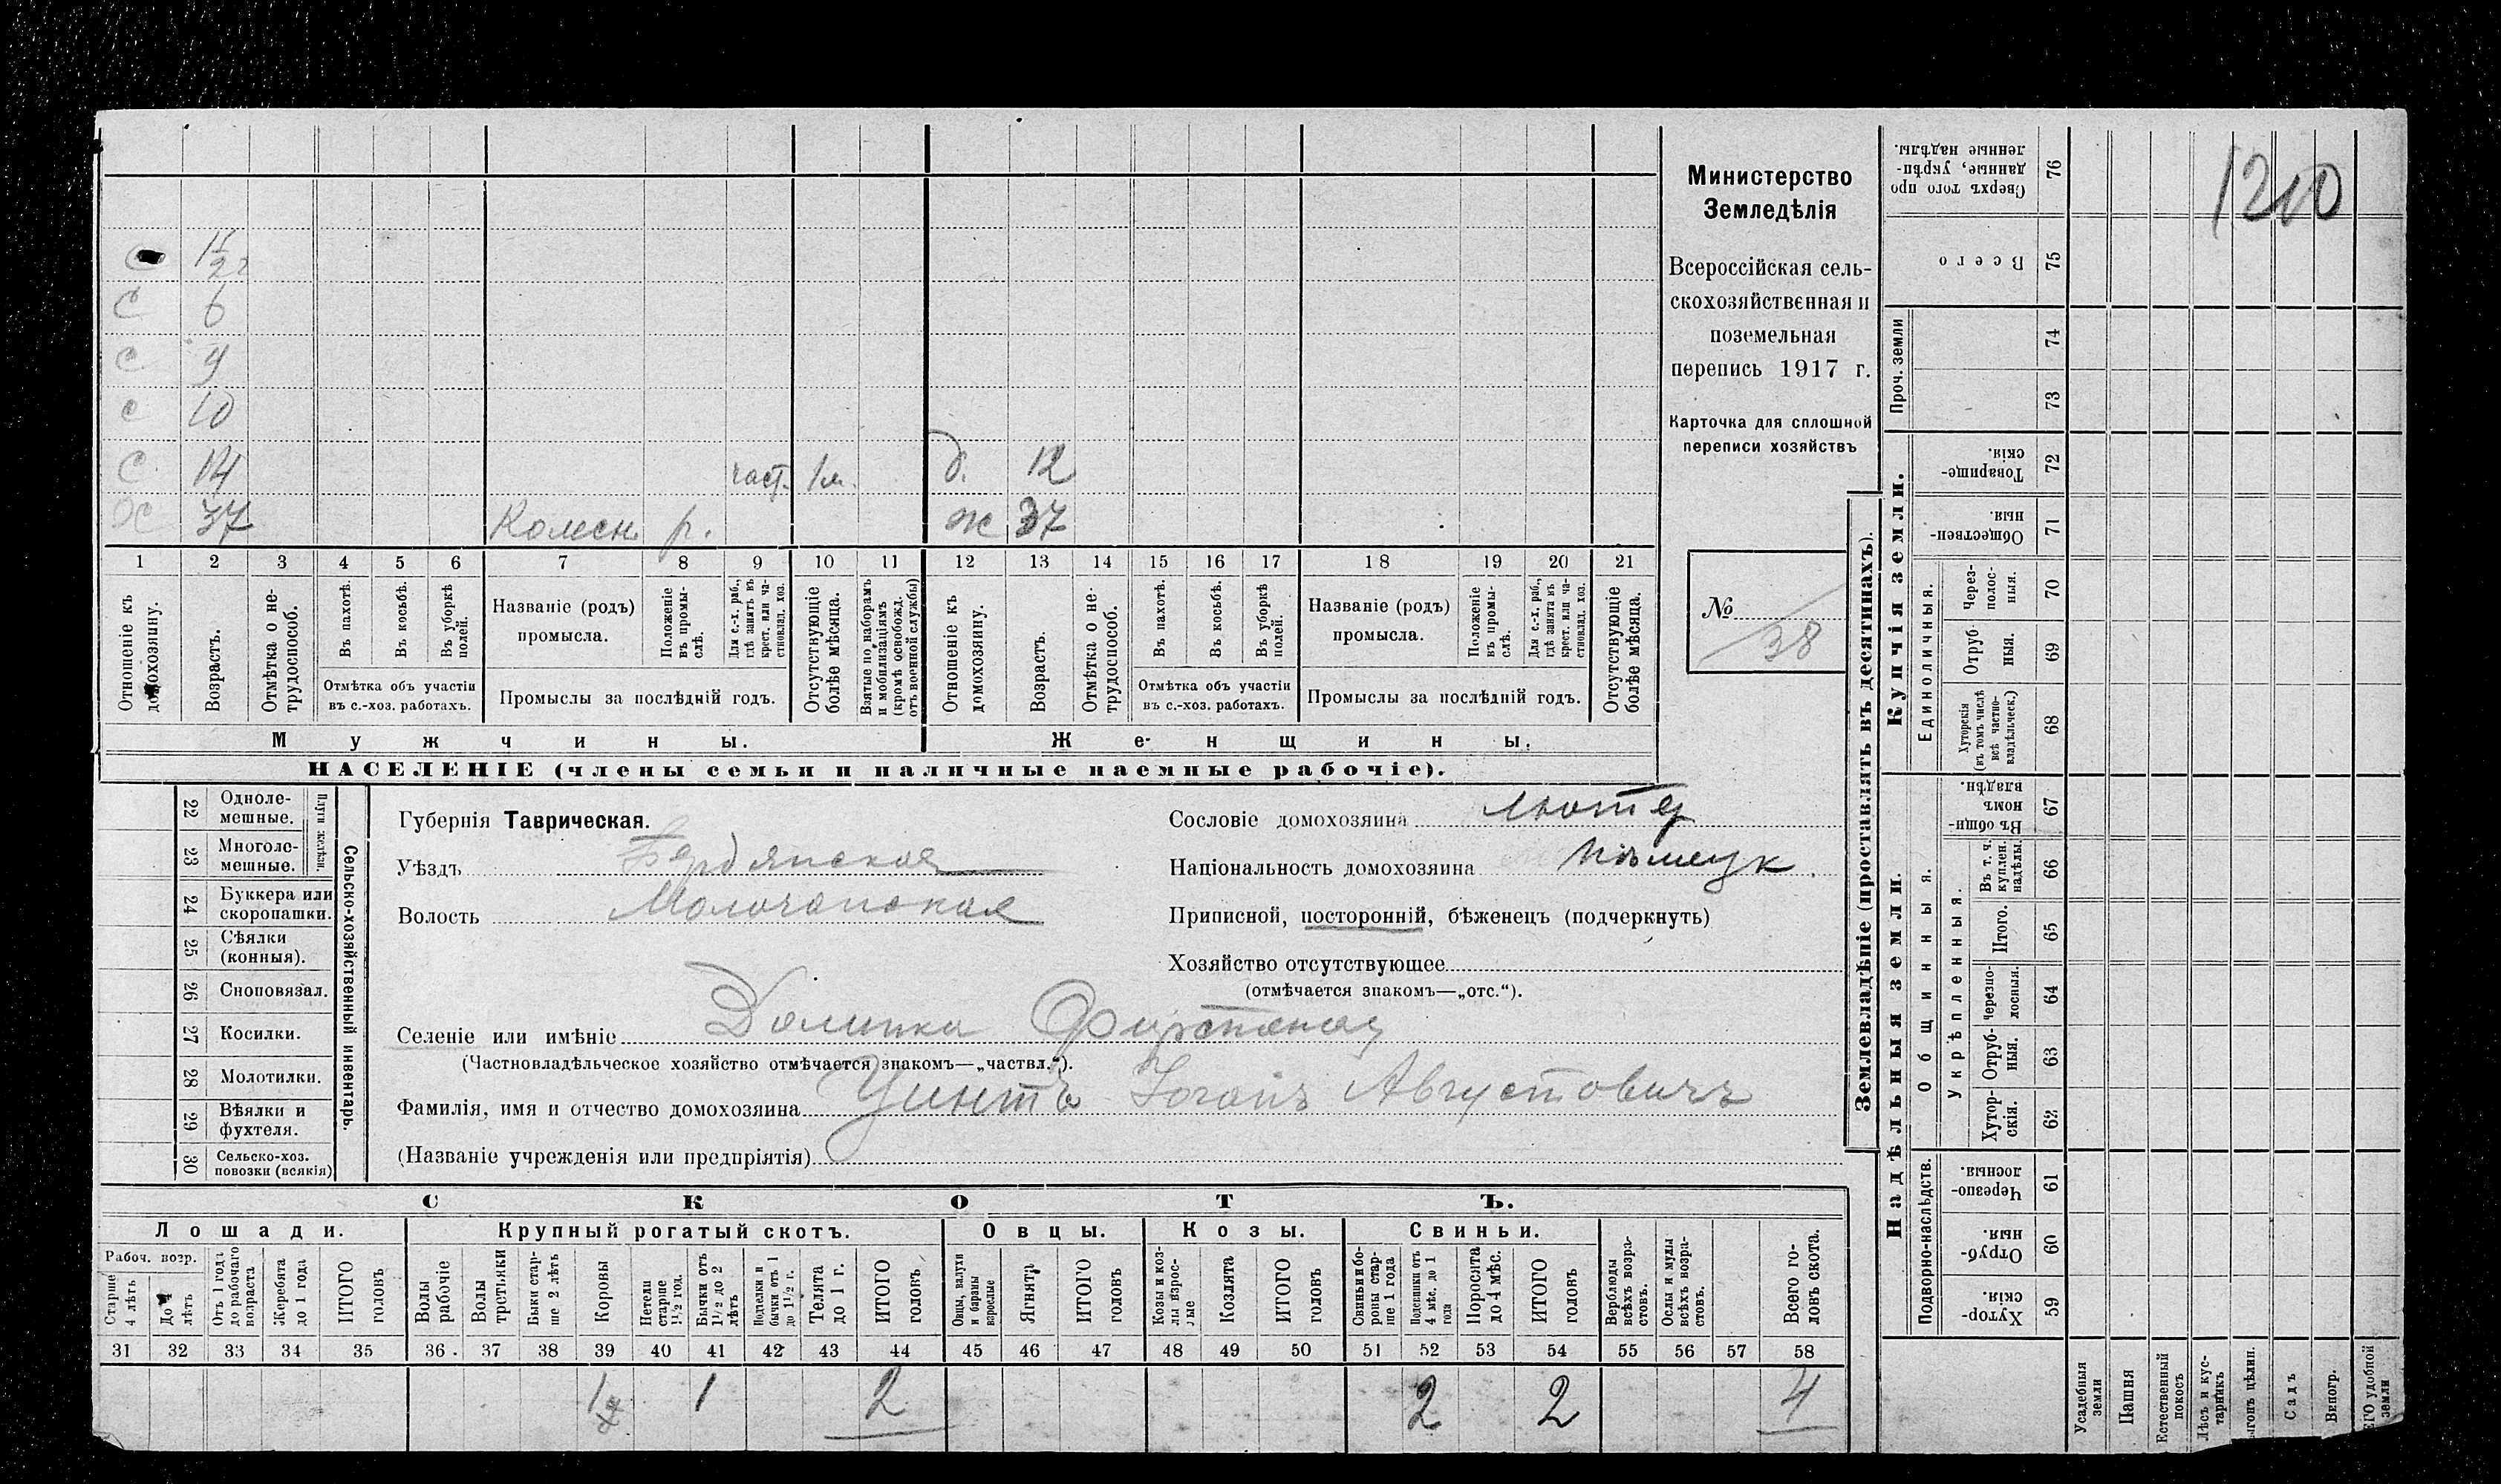 С 1 1/2 г
С 6
С 9
С 10
С 14 част. 1м. д. 12
Х 37 Колесн. р. ж 37
1 2 3 4 5 6 7 8 9 10 11 12 13 14 15 16 17 18 19 20 21
Отношеніе къ домохозяину.
Возрастъ.
Отмѣтка о нетрудоспособ.
Въ пахотѣ.
Въ косьбѣ.
Въ уборкѣ полей.
Отмѣтка объ участіи
въ с.-хоз. работахъ.
Названіе (родъ)
промысла.
Положеніе въ промыслѣ.
Для с.-х. раб., гдѣ занятъ въ крест. или частновлад. хоз.
Промыслы за послѣдній годъ.
Отсутствующіе болѣе мѣсяца.
Взятые по наборамъ и мобилизаціямъ (кромѣ освобожд. отъ военной службы)
Отношеніе къ домохозяину.
Возрастъ.
Отмѣтка о нетрудоспособ.
Въ пахотѣ.
Въ косьбѣ.
Въ уборкѣ полей.
Отмѣтка объ участіи
въ с.-хоз. работахъ.
Названіе (родъ)
промысла.
Положеніе въ промыслѣ.
Для с.-х. раб., гдѣ занята въ крест. или частновлад. хоз.
Промыслы за послѣдній годъ.
Отсутствующіе болѣе мѣсяца.
Мужчины. Женщины.
НАСЕЛЕНІЕ (члены семьи и наличные наемные рабочіе).
Министерство
Земледѣлія
Всероссійская сель-
скохозяйственная и
поземельная
перепись 1917 г.
Карточка для сплошной
переписи хозяйствъ
№ 38
Сельско-хозяйственный инвентарь.
Плуги желѣзн.
22 Одноле-
мешные.
23 Многоле-
мешные.
24 Буккера или
скоропашки.
25 Сѣялки
(конныя).
26 Сноповязал.
27 Косилки.
28 Молотилки.
29 Вѣялки и
фухтеля.
30 Сельско-хоз.
повозки (всякія)
Губернія Таврическая.
Уѣздъ Бердянская
Волость Молочанская
Сословіе домохозяина лютер
Національность домохозяина нѣмецк.
Приписной, посторонній, бѣженецъ (подчеркнуть)
Хозяйство отсутствующее
(отмѣчается знакомъ—„отс.“).
Селеніе или имѣніе Долинка Фирстенау
(Частновладѣльческое хозяйство отмѣчается знакомъ—„частвл.“).
Фамилія, имя и отчество домохозяина Цинтъ Іоганъ Августовичъ
(Названіе учрежденія или предпріятія)
СКОТЪ.
Лошади. Крупный рогатый скотъ. Овцы. Козы. Свиньи.
Рабоч. возр.
Старше 4 лѣтъ
До 4 лѣтъ
Отъ 1 года до рабочаго возраста
Жеребята до 1 года
ИТОГО головъ
Волы рабочіе
Волы третьяки
Быки старше 2 лѣтъ
Коровы
Нетели старше 1 1/2 год.
Бычки отъ 1 1/2 до 2 лѣтъ
Подтелки и бычки отъ 1 до 1 1/2 г.
Телята до 1 г.
ИТОГО головъ
Овцы, валухи и бараны взрослые
Ягнята
ИТОГО головъ
Козы и козлы взрослые
Козлята
ИТОГО головъ
Свиньи и боровы старше 1 года
Подсвинки отъ 4 мѣс. до 1 года
Поросята до 4 мѣс.
ИТОГО головъ
Верблюды всѣхъ возрастовъ.
Ослы и мулы всѣхъ возрастовъ.
Всего головъ скота.
31 32 33 34 35 36 37 38 39 40 41 42 43 44 45 46 47 48 49 50 51 52 53 54 55 56 57 58
1 1 2 2 2 4
Землевладѣніе (проставлять въ десятинахъ).
Сверхъ того проданные, укрѣпленные надѣлы. 76
Всего 75
Проч. земли 74 73
Купчія земли.
Товарищескія. 72
Общественныя 71
Единоличныя.
Черезполосныя. 70
Отрубныя. 69
Хуторскія (въ томъ числѣ всѣ частновладѣльческ.) 68
Надѣльныя земли.
Общинныя.
Въ общинномъ владѣн. 67
Укрѣпленныя.
Въ т. ч. куплен. надѣлы. 66
Итого. 65
Черезполосныя. 64
Отрубныя. 63
Хуторскія. 62
Подворно-наслѣдств.
Черезполосныя. 61
Отрубныя. 60
Хуторскія. 59
Усадебныя земли
Пашня
Естественный покосъ
Лѣсъ и кустарникъ
цѣлин.
Садъ
Виногр.
удобной земли
1210